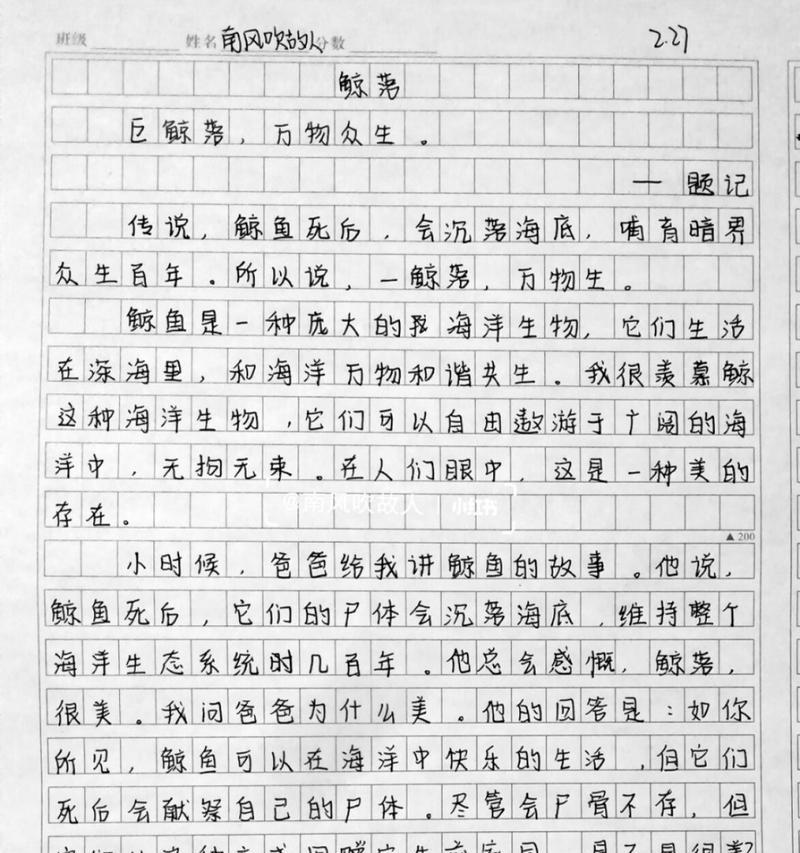 班级 姓名 南风吹故人 分数 2.27
鲸落
巨鲸落，万物众生。
— 题记
传说，鲸鱼死后，会沉落海底，哺育暗界
众生百年。所以说，一鲸落，万物生。
鲸鱼是一种庞大的 海洋生物，它们生活
在深海里，和海洋万物和谐共生。我很羡慕鲸
这种海洋生物，它们可以自由遨游于广阔的海
洋中，无拘无束。在人们眼中，这是一种美的
存在。
@南风吹故人 小红书
▲200
小时候，爸爸给我讲鲸鱼的故事。他说，
鲸鱼死后，它们的尸体会沉落海底，维持整个
海洋生态系统时几百年。他总会感慨，鲸落，
很美。我问爸爸为什么美。他的回答是：如你
所见，鲸鱼可以在海洋中快乐的生活，但它们
死后会献祭自己的尸体。尽管会尸骨不存，但